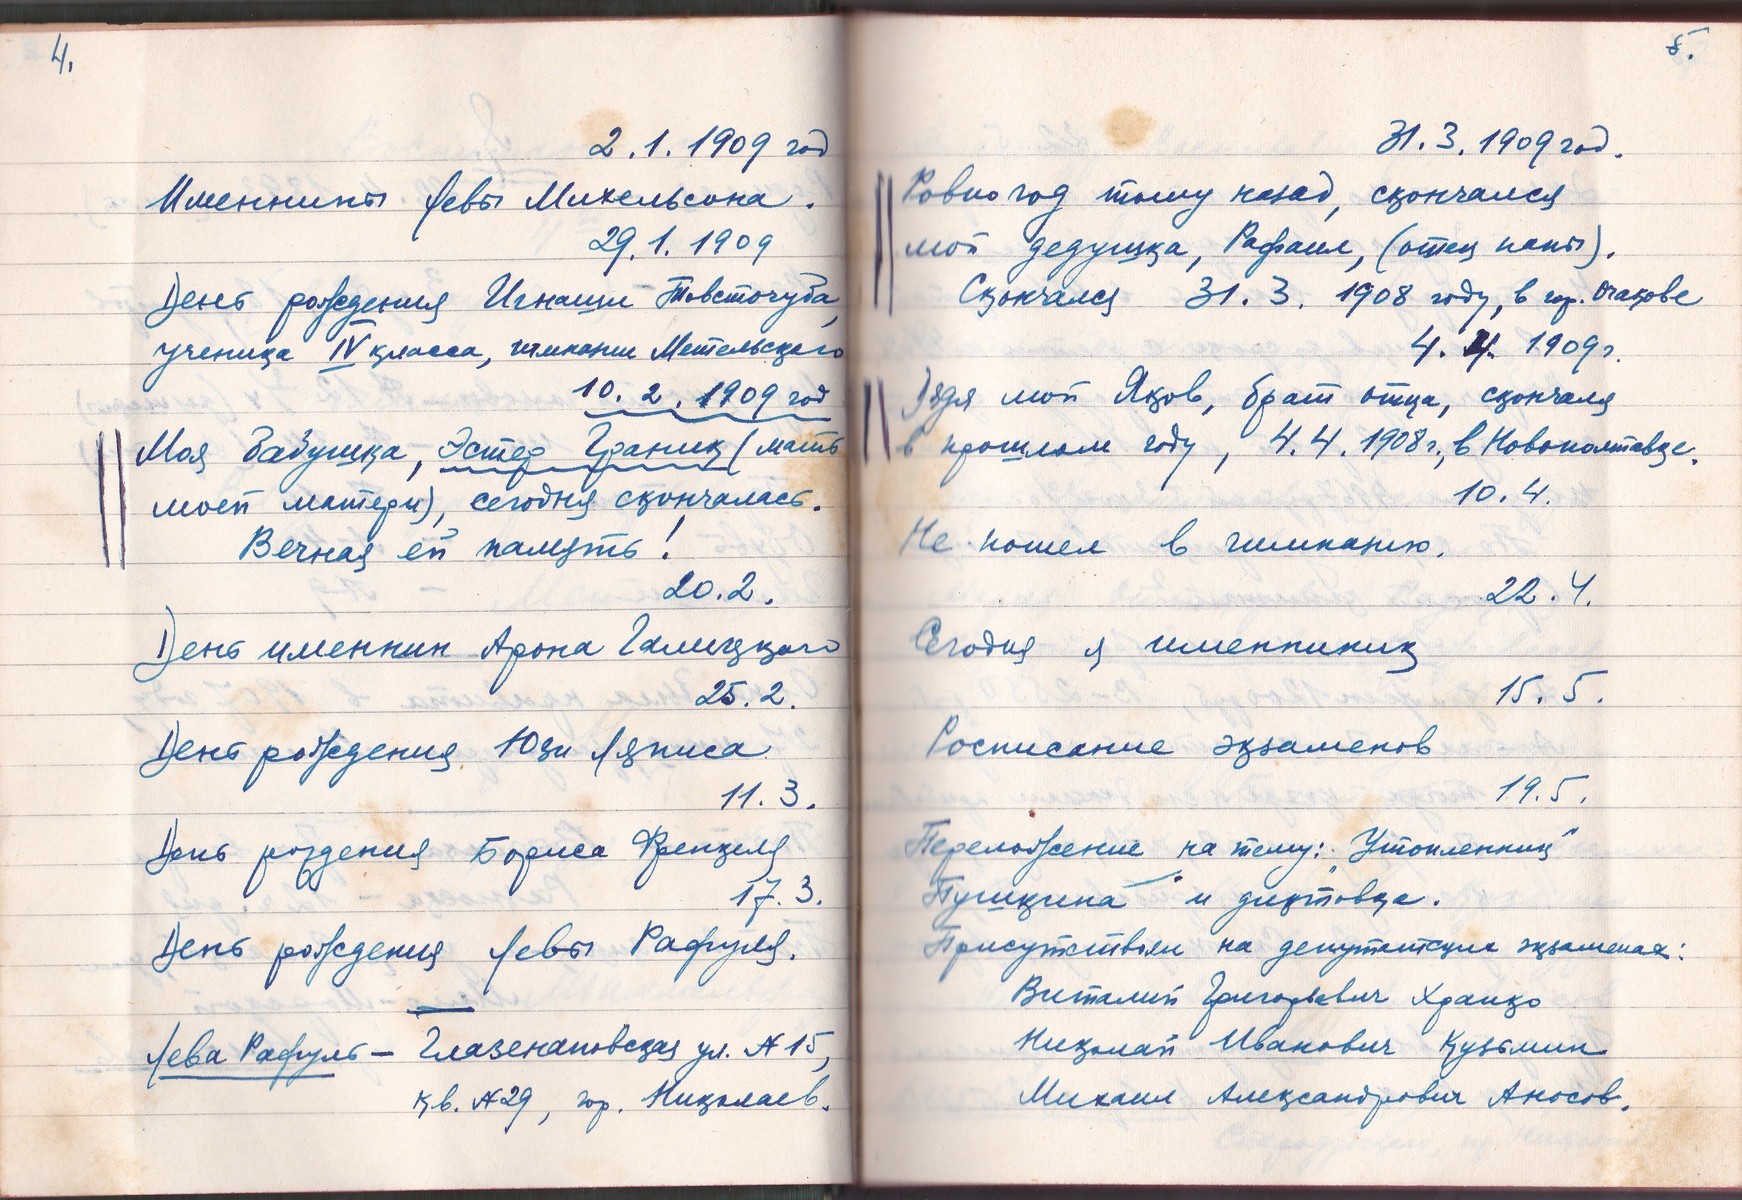 4.
2.1.1909 год
Именнины Левы Михельсона.
29.1.1909
День рождения Игнаши Товсточуба,
ученица IV класса, гимназии Метельского
10.2.1909 год
Моя бабушка, Эстер Граник (мать
моей матери), сегодня скончалась.
Вечная ей память!
20.2.
День именнин Арона Галицкого
25.2.
День рождения Юзи Ляписа
11.3.
День роздения Бориса Френкеля
17.3.
День рождения Левы Рафуля.
Лева Рафуль — Глазенаповская ул. № 15,
кв. № 29, гор. Николаев.
5.
31.3.1909 год.
Ровно год тому назад, скончался
мой дедушка, Рафаил, (отец папы).
Скончался 31.3.1908 году, в гор. Очакове
4.4.1909 г.
Дядя мой Яков, брат отца, скончаля
в прошлом году, 4.4.1908 г., в Новополтавке.
10.4.
Не пошел в гимназию.
22.4.
Сегодня я именниник
15.5.
Росписание экзаменов
19.5.
Переложение на тему: "Утопленник"
Пушкина" и диктовка.
Присутствали на депутатских экзаменах:
Виталий Григорьевич Храпко
Николай Иванович Кузьмин
Михаил Александрович Аносов.